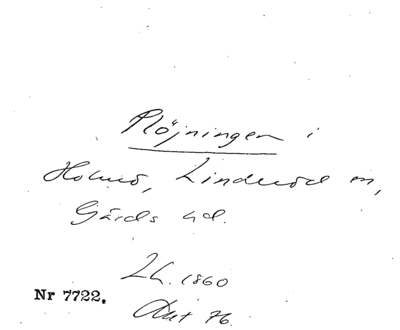 Plöjningen i
Holmö, Linderöd m,
Gärds hd.
Lh. 1860
Nr 7722.
76